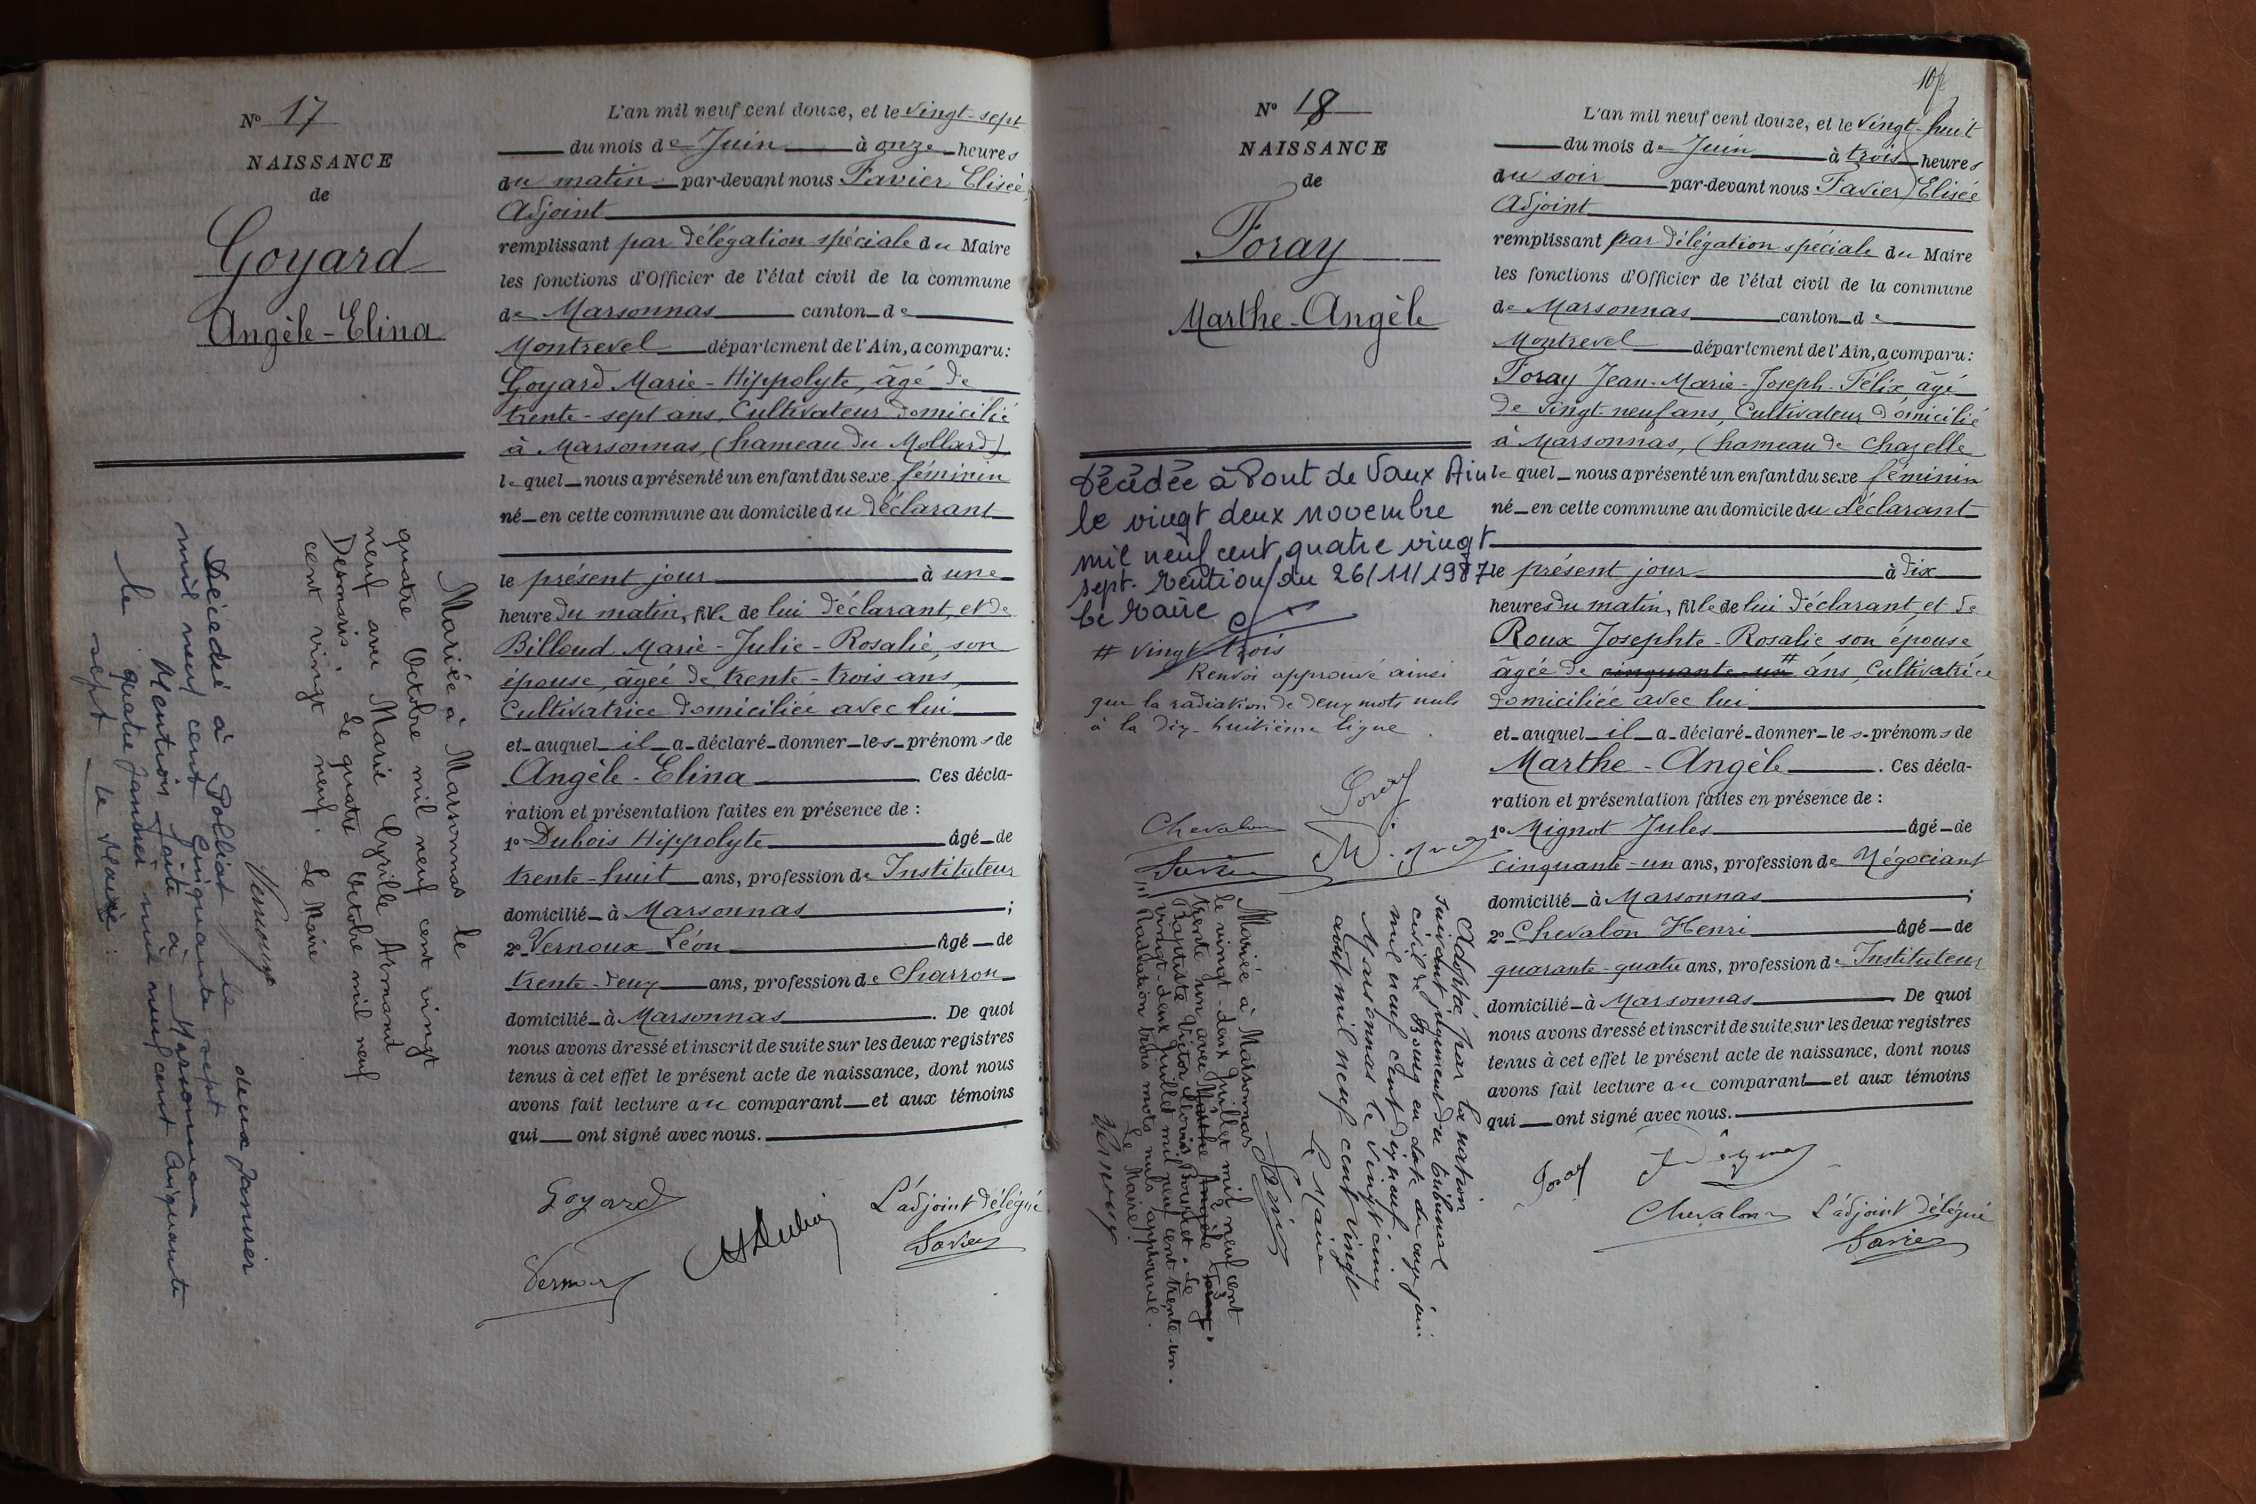 N° 17
NAISSANCE
de
Goyard
Angèle-Elina
L'an mil neuf cent douze, et le vingt-sept
du mois de Juin à onze heures
du matin par-devant nous Favier Elisée
Adjoint
remplissant par délégation spéciale du Maire
les fonctions d'Officier de l'état civil de la commune
de Marsonnas canton de
Montrevel département de l'Ain, a comparu :
Goyard Marie-Hippolyte, âgé de
trente-sept ans, Cultivateur domicilié
à Marsonnas, (hameau du Mollard)
lequel nous a présenté un enfant du sexe féminin
né en cette commune au domicile du déclarant
le présent jour à une
heure du matin, fille de lui déclarant, et de
Billoud Marie-Julie-Rosalie, son
épouse, âgée de trente-trois ans,
Cultivatrice domiciliée avec lui
et auquel il a déclaré donner les prénoms de
Angèle-Elina. Ces décla-
ration et présentation faites en présence de :
1° Dubois Hippolyte âgé de
trente-huit ans, profession de Instituteur
domicilié à Marsonnas ;
2° Vernoux Léon âgé de
trente-deux ans, profession de Charron
domicilié à Marsonnas. De quoi
nous avons dressé et inscrit de suite sur les deux registres
tenus à cet effet le présent acte de naissance, dont nous
avons fait lecture au comparant et aux témoins
qui ont signé avec nous.
Goyard
Vernoux
H Dubois
L'adjoint délégué
Favier
Mariée à Marsonnas le
quatre Octobre mil neuf cent vingt
neuf avec Marie Cyrille Armand
Desmaris. Le quatre Octobre mil neuf
cent vingt neuf. Le Maire
Vernoux
Décédée à Polliat le deux Janvier
mil neuf cent cinquante sept
Mention faite à Marsonnas
le quatre Janvier mil neuf cent cinquante
sept Le Maire :
10
N° 18
NAISSANCE
de
Foray
Marthe-Angèle
Décédée à Pont de Vaux Ain
le vingt deux novembre
mil neuf cent quatre vingt
sept. Mention du 26/11/1987
le Maire
# vingt trois
Renvoi approuvé ainsi
que la radiation de deux mots nuls
à la dix-huitième ligne.
Foray
Chevalon
Favier
Adoptée par la nation
suivant jugement du tribunal
civil de Bourg en date du onze juin
mil neuf cent dix neuf.
Marsonnas le vingt cinq
août mil neuf cent vingt
Le Maire
Favier
Mariée à Marsonnas
le vingt-deux Juillet mil neuf cent
trente un avec Marthe Angèle Foray
Baptiste Victor Clovis Bourret. Le
vingt-deux Juillet mil neuf cent trente-un.
Radiation trois mots nuls approuvée.
Le Maire
Vernoux
L'an mil neuf cent douze, et le vingt-huit
du mois de Juin à trois heures
du soir par-devant nous Favier Elisée
Adjoint
remplissant par délégation spéciale du Maire
les fonctions d'Officier de l'état civil de la commune
de Marsonnas canton de
Montrevel département de l'Ain, a comparu :
Foray Jean-Marie-Joseph-Félix âgé
de vingt-neuf ans, Cultivateur domicilié
à Marsonnas, (hameau de Chazelle
lequel nous a présenté un enfant du sexe féminin
né en cette commune au domicile du déclarant
le présent jour à dix
heures du matin, fille de lui déclarant, et de
Roux Josephte-Rosalie son épouse
âgée de cinquante-un # ans, Cultivatrice
domiciliée avec lui
et auquel il a déclaré donner les prénoms de
Marthe-Angèle. Ces décla-
ration et présentation faites en présence de :
1° Mignot Jules âgé de
cinquante-un ans, profession de Négociant
domicilié à Marsonnas ;
2° Chevalon Henri âgé de
quarante-quatre ans, profession de Instituteur
domicilié à Marsonnas. De quoi
nous avons dressé et inscrit de suite sur les deux registres
tenus à cet effet le présent acte de naissance, dont nous
avons fait lecture au comparant et aux témoins
qui ont signé avec nous.
Foray
Chevalon
L'adjoint délégué
Favier